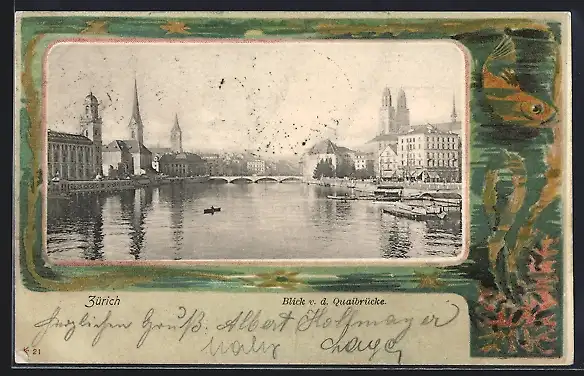 Zürich Blick v. d. Quaibrücke.
Herzlichen Gruß. Albert Hoffmayer
K 21